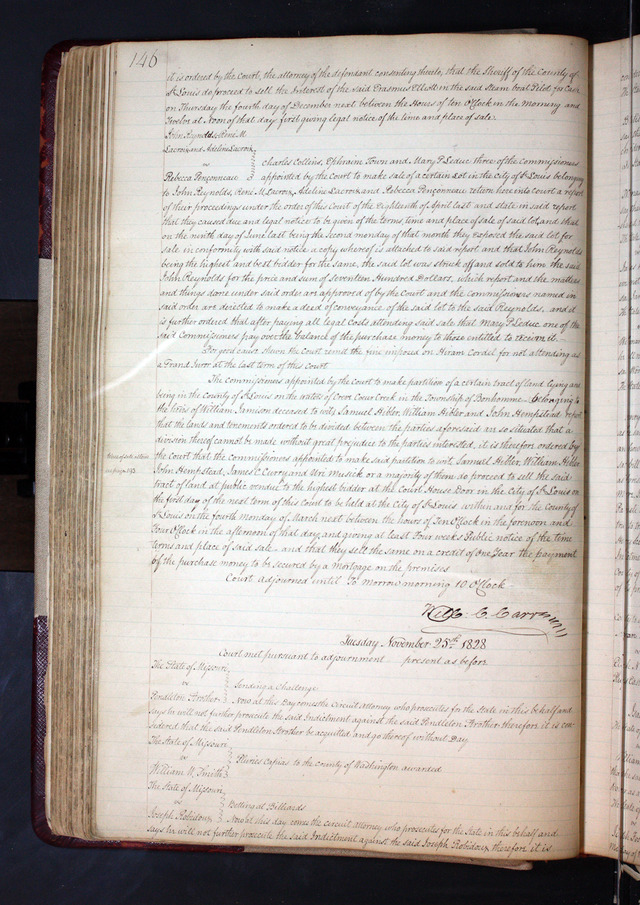 146
it is ordered by the Court, the attorney of the defendant consenting thereto, that the Sheriff of the County of
St Louis do proceed to sell the Interest of the said Erasmus Ellis in the said Steam boat Pilot for Cash
on Thursday the fourth day of December next between the Hours of ten O'Clock in the Morning and
Twelve at Noon of that day first giving legal notice of the time and place of sale.
John Reynolds, René M.
Lacroix, and Adeline Lacroix
vs
Charles Collins, Ephraim Town and Mary P. Leduc three of the commissioners
Rebecca Pensonneau
appointed by the Court to make sale of a certain Lot in the City of St Louis belonging
to John Reynolds, René M. Lacroix, Adeline Lacroix and Rebecca Pensonneau, return here into Court a report
of their proceedings under the order of this Court of the eighteenth of April last and state in said report
that they caused due and legal notice to be given of the terms, time and place of sale of said lot, and that
on the ninth day of June last being the second monday of that month they exposed the said lot for
sale in conformity with said notice a copy whereof is attached to said report and that John Reynolds
being the highest and best bidder for the same, the said lot was struck off and sold to him the said
John Reynolds for the price and sum of Seventeen Hundred Dollars, which report and the matters
and things done under said order are approved of by the Court and the commissioners named in
said order are directed to make a deed of conveyance of the said lot to the said Reynolds, and it
is further ordered that after paying all legal costs attending said sale that Mary P. Leduc one of the
said Commissioners pay over the balance of the purchase money to those entitled to receive it.
For good cause shown the Court remit the fine imposed on Hiram Cordel for not attending as
a Grand Juror at the last term of this Court
The Commissioners appointed by the Court to make partition of a certain tract of land lying and
being in the county of St Louis on the waters of Creve Coeur Creek in the Township of Bonhomme belonging to
the heirs of William Jamison deceased to wit, Samuel Hibler, William Hibler and John Hempstead report
that the lands and tenements ordered to be divided between the parties aforesaid are so situated that a
division thereof cannot be made without great prejudice to the parties interested, it is therefore ordered by
the Court that the commissioners appointed to make said partition to wit, Samuel Hibler, William Hibler
John Hempstead, James C. Curry and Uri Musick or a majority of them do proceed to sell the said
tract of land at public vendue to the highest bidder at the Court House Door in the City of St Louis on
the first day of the next term of this Court to be held at the City of St Louis within and for the County of
St Louis on the fourth Monday of March next between the hours of Ten O'Clock in the forenoon and
Four O'Clock in the afternoon of that day, and giving at least Four weeks Public notice of the time
terms and place of said sale and that they sell the same on a credit of One Year the payment
of the purchase money to be secured by a mortgage on the premises
Court adjourned until To Morrow morning 10 O'Clock
Will. C. Carr
Tuesday November 25th 1828
Court met pursuant to adjournment present as before
The State of Missouri
vs
Sending a Challenge
Pendleton Brother
Now at this Day comes the Circuit attorney who prosecutes for the State in this behalf and
says he will not further prosecute the said Indictment against the said Pendleton Brother therefore it is con
sidered that the said Pendleton Brother be acquitted and go thereof without Day
The State of Missouri
vs
Pluries Capias to the county of Washington awarded
William N. Smith
The State of Missouri
vs
Betting at Billiards
Joseph Robidoux
Now at this day comes the circuit attorney who prosecutes for the State in this behalf and
says he will not further prosecute the said Indictment against the said Joseph Robidoux therefore it is